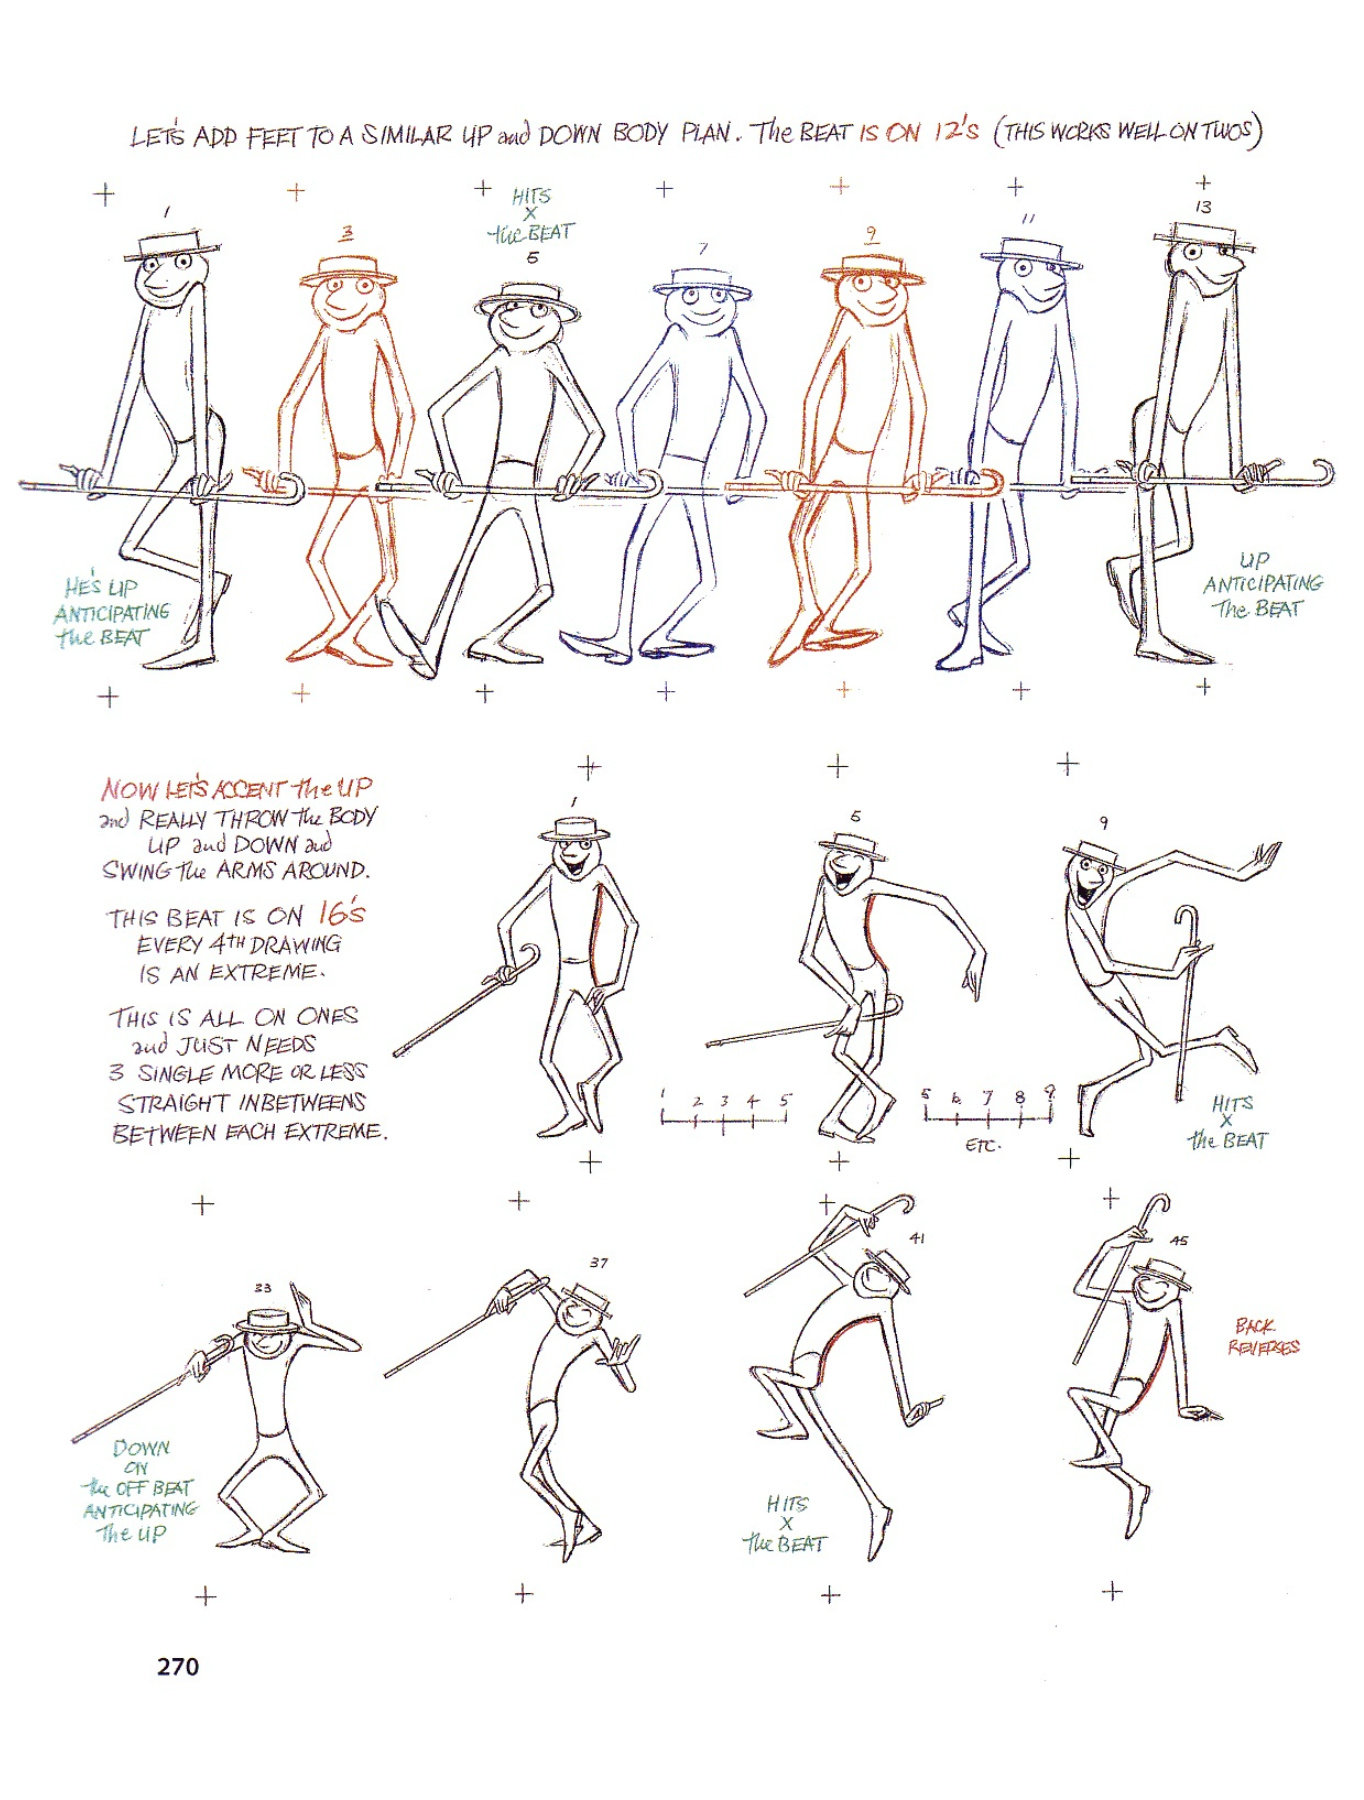 LET'S ADD FEET TO A SIMILAR UP and DOWN BODY PLAN. The BEAT IS ON 12's (THIS WORKS WELL ON TWOS)
1
3
HITS
X
the BEAT
5
7
9
11
13
HE'S UP
ANTICIPATING
the BEAT
UP
ANTICIPATING
The BEAT
NOW LET'S ACCENT the UP
and REALLY THROW the BODY
UP and DOWN and
SWING The ARMS AROUND.
THIS BEAT IS ON 16's
EVERY 4TH DRAWING
IS AN EXTREME.
THIS IS ALL ON ONES
and JUST NEEDS
3 SINGLE MORE OR LESS
STRAIGHT INBETWEENS
BETWEEN EACH EXTREME.
1
5
9
1 2 3 4 5
5 6 7 8 9
ETC.
HITS
X
the BEAT
33
37
41
45
DOWN
ON
the OFF BEAT
ANTICIPATING
The UP
HITS
X
the BEAT
BACK
REVERSES
270